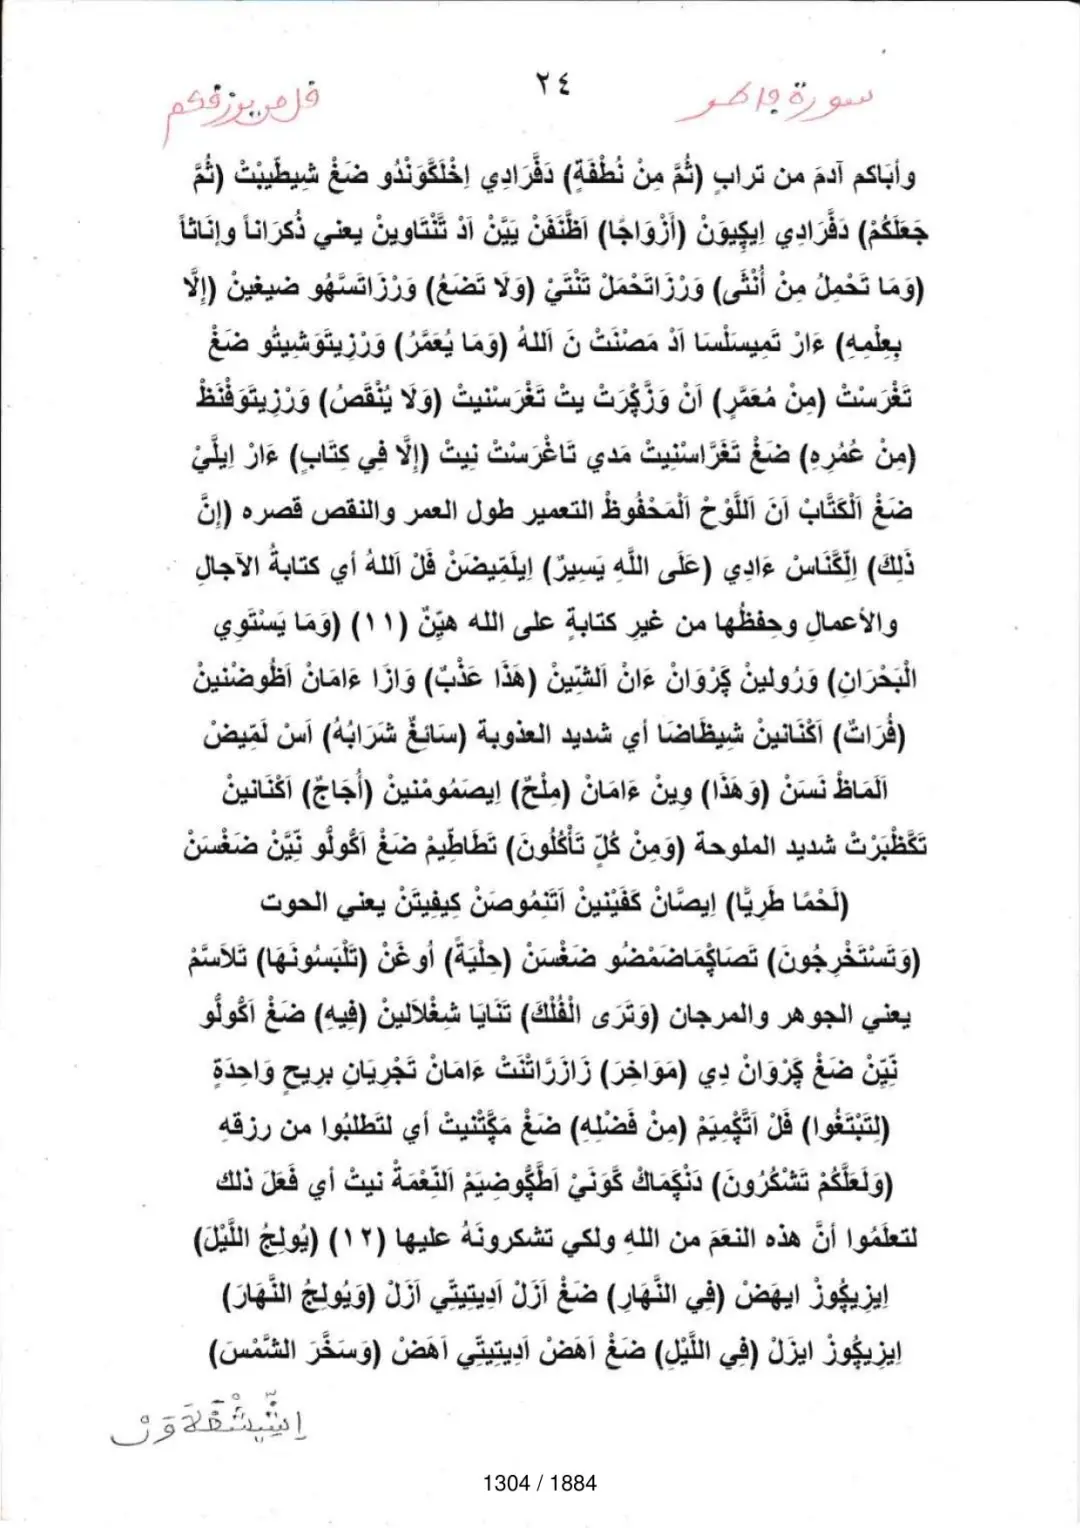 سورة فاطر
٢٤
قل من يرزقكم
وأبَاكم آدمَ من ترابٍ (ثُمَّ مِنْ نُطْفَةٍ) دَفَّرَادِي اِخْلَكَّوَنْدُو ضَغْ شِيطِّيبْتْ (ثُمَّ
جَعَلَكُمْ) دَفَّرَادِي اِيكِيوَنْ (أَزْوَاجًا) اَظُّنَفَنْ يَيَّنْ اَدْ تَّنْتَاوِينْ يعني ذُكرَاناً وإنَاثاً
(وَمَا تَحْمِلُ مِنْ أُنْثَى) وَرْزَاتَحْمَلْ تَنْتَيْ (وَلَا تَضَعُ) وَرْزَاتَسَّهُو ضيغينْ (إِلَّا
بِعِلْمِهِ) ءَارْ تَمِيسَلْسَا اَدْ مَصْنَتْ نَ اَللهُ (وَمَا يُعَمَّرُ) وَرْزِيتَوَشِيتُو ضَغْ
تَغْرَسْتْ (مِنْ مُعَمَّرٍ) اَنْ وَزَّكِرَتْ يتْ تَغْرَسْنيتْ (وَلَا يُنْقَصُ) وَرْزِيتَوَفْنَظْ
(مِنْ عُمُرِهِ) ضَغْ تَغَرَّاسْنِيتْ مَدي تَاغْرَسْتْ نِيتْ (إِلَّا فِي كِتَابٍ) ءَارْ اِيلَّيْ
ضَغْ اَلْكَتَّابْ اَنَ اَللَّوْحْ اَلْمَحْفُوظْ التعمير طول العمر والنقص قصره (إِنَّ
ذَلِكَ) اِلِّكَّنَاسْ ءَادِي (عَلَى اللَّهِ يَسِيرٌ) اِيلَمِّيضَنْ فَلْ اَللهُ أي كتابةُ الآجالِ
والأعمالِ وحِفظُها من غيرِ كتابةٍ على الله هيِّنٌ (١١) (وَمَا يَسْتَوِي
الْبَحْرَانِ) وَرُولينْ كِرْوَانْ ءَانْ اَلشِّينْ (هَذَا عَذْبٌ) وَازَا ءَامَانْ اَظُوضْنينْ
(فُرَاتٌ) اَكْنَانينْ شيظَاضَا أي شديد العذوبة (سَائِغٌ شَرَابُهُ) اَسْ لَمِّيضْ
اَلَمَاظْ نَسَنْ (وَهَذَا) وِينْ ءَامَانْ (مِلْحٌ) اِيصَمُومْنينْ (أُجَاجٌ) اَكْنَانينْ
تَكَّظْبَرْتْ شديد الملوحة (وَمِنْ كُلٍّ تَأْكُلُونَ) تَطَاطِّيمْ ضَغْ اَكُّولُّو نِّيَّنْ ضَغْسَنْ
(لَحْمًا طَرِيًّا) اِيصَّانْ كَفَيْنينْ اَتَنِمُوصَنْ كِيفِيتَنْ يعني الحوت
(وَتَسْتَخْرِجُونَ) تَصَاكَمَاضَمْضُو ضَغْسَنْ (حِلْيَةً) أُوغَنْ (تَلْبَسُونَهَا) تَلَاسَّمْ
يعني الجوهر والمرجان (وَتَرَى الْفُلْكَ) تَنَايَا شِغْلَالينْ (فِيهِ) ضَغْ اَكُّولُّو
نِّيَّنْ ضَغْ كِرْوَانْ دِي (مَوَاخِرَ) زَازَرَّاتْنَتْ ءَامَانْ تَجْرِيَانِ بريحٍ وَاحِدَةٍ
(لِتَبْتَغُوا) فَلْ اَتَّكْمِيَمْ (مِنْ فَضْلِهِ) ضَغْ مَكَّتْنيتْ أي لتَطلبُوا من رزقهِ
(وَلَعَلَّكُمْ تَشْكُرُونَ) دَنْكَمَاكْ كَّوَنَيْ اَطَّكُوضيَمْ اَلنِّعْمَةْ نيتْ أي فَعَلَ ذلك
لتعلَمُوا أنَّ هذه النعَمَ من اللهِ ولكي تشكرونَهُ عليها (١٢) (يُولِجُ اللَّيْلَ)
اِيزِيكُوزْ ايهَضْ (فِي النَّهَارِ) ضَغْ اَزَلْ اَديتِيتِّي اَزَلْ (وَيُولِجُ النَّهَارَ)
اِيزِيكُوزْ ايزَلْ (فِي اللَّيْلِ) ضَغْ اَهَضْ اَدِيتِيتِّي اَهَضْ (وَسَخَّرَ الشَّمْسَ)
1304 / 1884